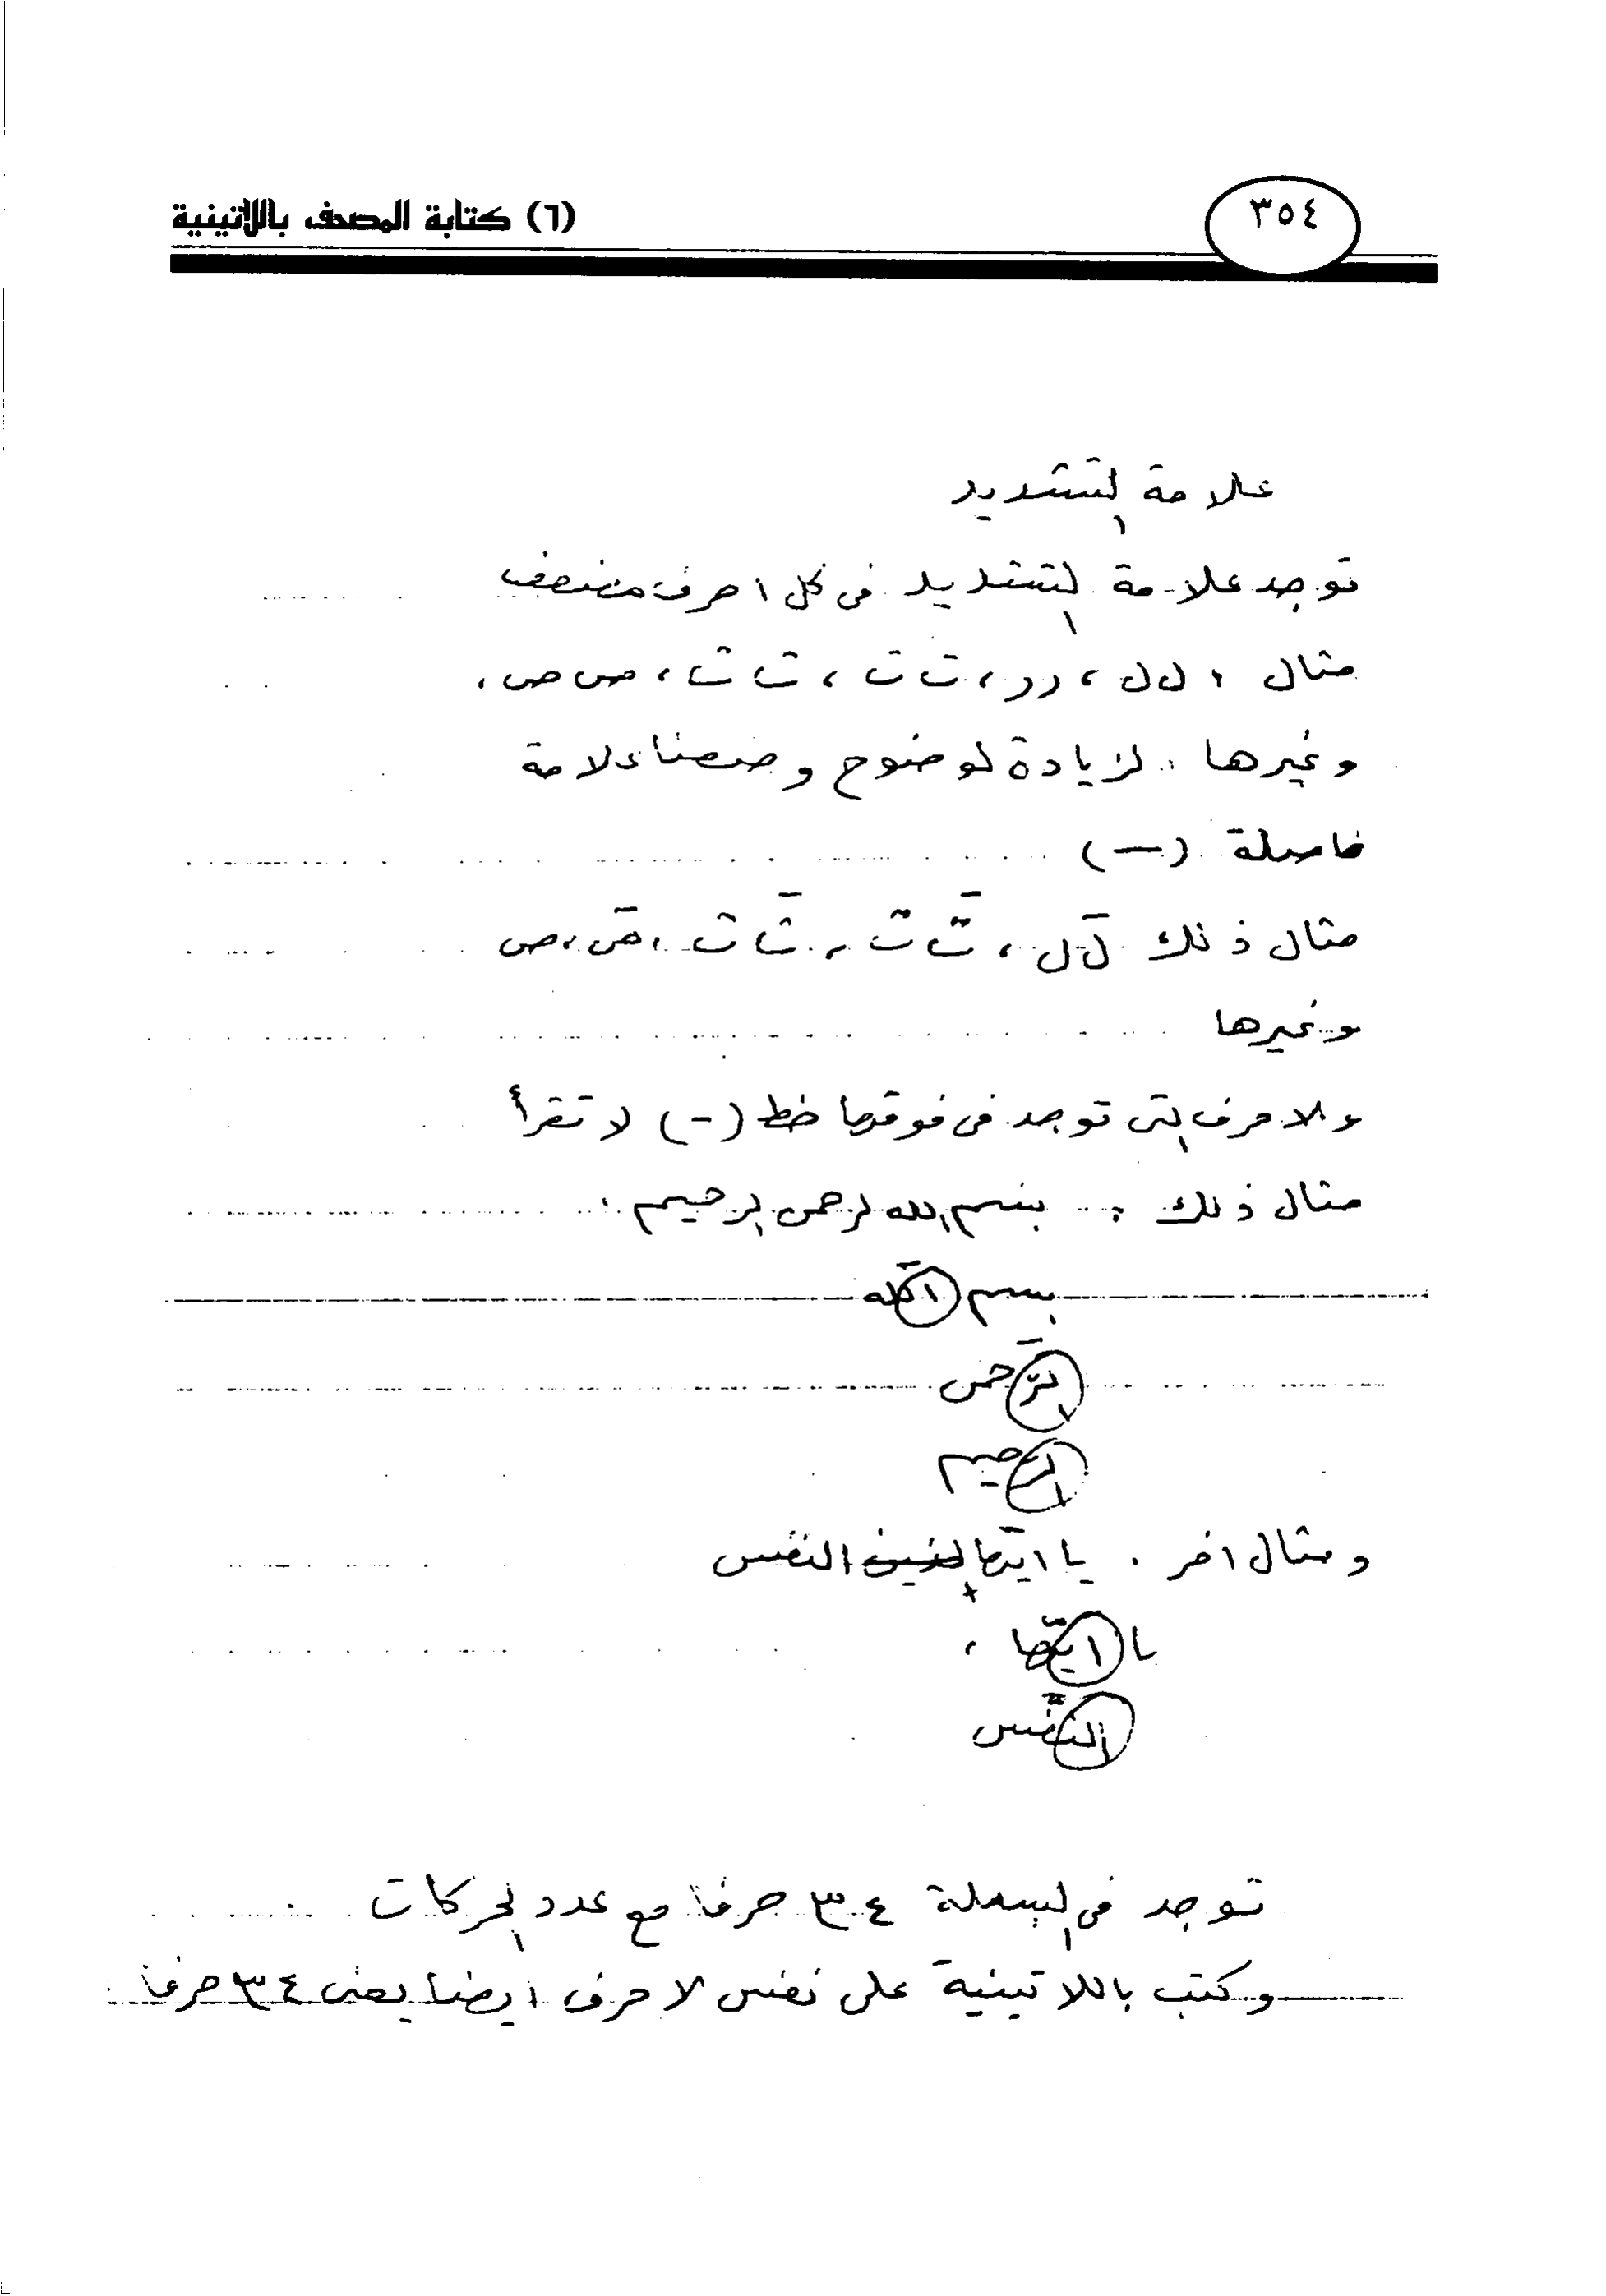 ٣٥٤
(٦) كتابة المصحف باللاتينية
علامة التشديد
توجد علامة التشديد فى كل احرف مضعف
مثال : ل ل ، ر ر ، ت ت ، ث ث ، ص ص ،
وغيرها . لزيادة لوضوح وضعنا علامة
فاصلة (—)
مثال ذلك لَ ل ، تَّ ت ، ثَ ث ، صَ ، ص
وغيرها
والاحرف التى توجد فى فوقها خط (-) لا تقرأ
مثال ذلك : بسم الله لرحمن الرحيم .
بسم الله
الرّحمن
الرحيم
ومثال اخر . يا ايتها النفس
يا ايّها ،
النّفس
توجد فى البسملة ٣٤ حرفا مع عدد الحركات
وكتب باللاتينية على نفس لاحرف ايضا يعنى ٣٤ حرفا